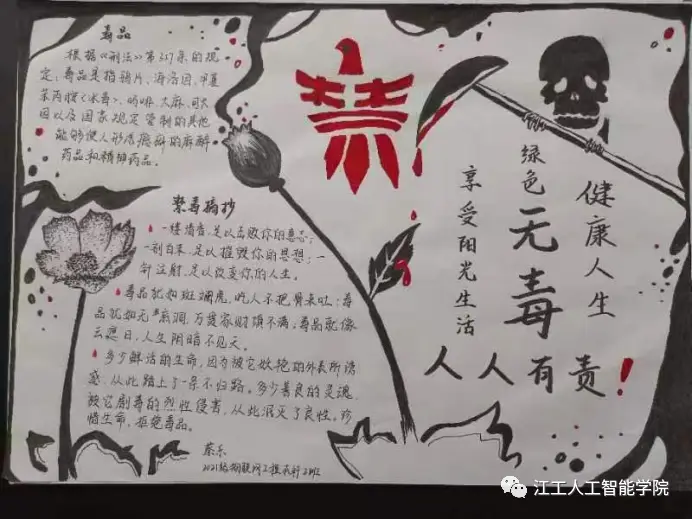 毒品
根据《刑法》第357条的规
定，毒品是指鸦片、海洛因、甲基
苯丙胺（冰毒）、吗啡、大麻、可卡
因以及国家规定管制的其他
能够使人形成瘾癖的麻醉
药品和精神药品。
禁毒摘抄
一缕清香，足以击败你的意志；
一剖白末，足以摧毁你的思想；一
针注射，足以改变你的人生。
毒品就如斑斓虎，吃人不把骨来吐；毒
品就如无底洞，万贯家财填不满。毒品就像
云遮日，人生阴暗不见天。
多少鲜活的生命，因为被它妖艳的外表所诱
惑，从此踏上了一条不归路。多少善良的灵魂，
被它剧毒的烈性侵害，从此泯灭了良性。珍
惜生命，拒绝毒品。
2021级物联网工程本科2班
禁
健康人生
绿色无毒
享受阳光生活
人人有责！
江工人工智能学院